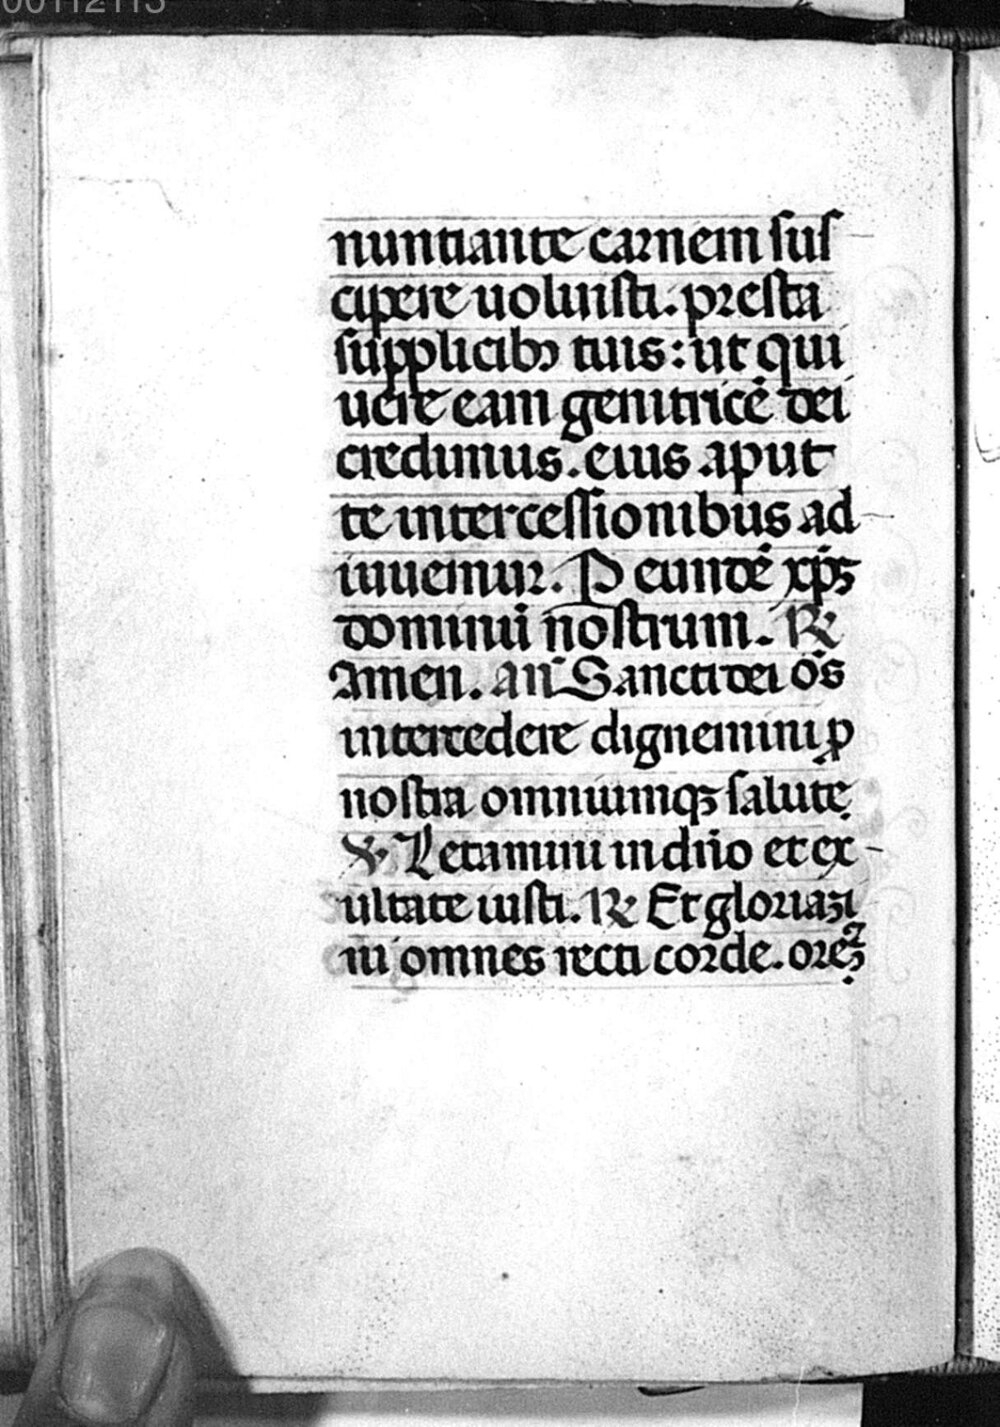 00112113
nuntiante carnem sus
cipere uoluisti. presta
supplicibꝫ tuis: ut qui
uere eam genitricē dei
credimus. eius aput
te intercessionibus ad
iuuemur. P eundē xp̄ꝫ
dominū nostrum. ℟
Amen. añ Sancti dei oēs
intercedere dignemini ꝓ
nostra omniumqꝫ salute.
℣. Letamini in dño et ex
ultate iusti. ℟ Et gloriami
ni omnes recti corde. oremꝯ